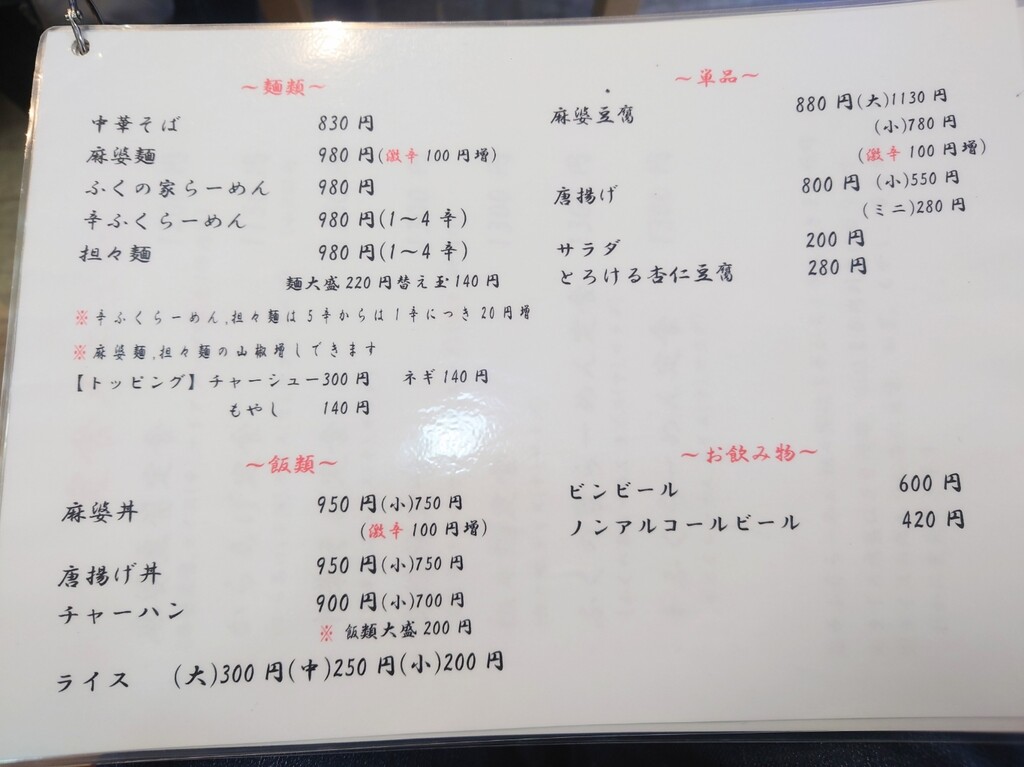 ～麺類～
中華そば 830円
麻婆麺 980円(激辛100円増)
ふくの家らーめん 980円
辛ふくらーめん 980円(1～4辛)
担々麺 980円(1～4辛)
麺大盛220円替え玉140円
※辛ふくらーめん,担々麺は5辛からは1辛につき20円増
※麻婆麺,担々麺の山椒増しできます
【トッピング】チャーシュー300円 ネギ140円
もやし 140円
～飯類～
麻婆丼 950円(小)750円
(激辛100円増)
唐揚げ丼 950円(小)750円
チャーハン 900円(小)700円
※ 飯類大盛200円
ライス (大)300円(中)250円(小)200円
～単品～
麻婆豆腐 880円(大)1130円
(小)780円
(激辛100円増)
唐揚げ 800円 (小)550円
(ミニ)280円
サラダ 200円
とろける杏仁豆腐 280円
～お飲み物～
ビンビール 600円
ノンアルコールビール 420円